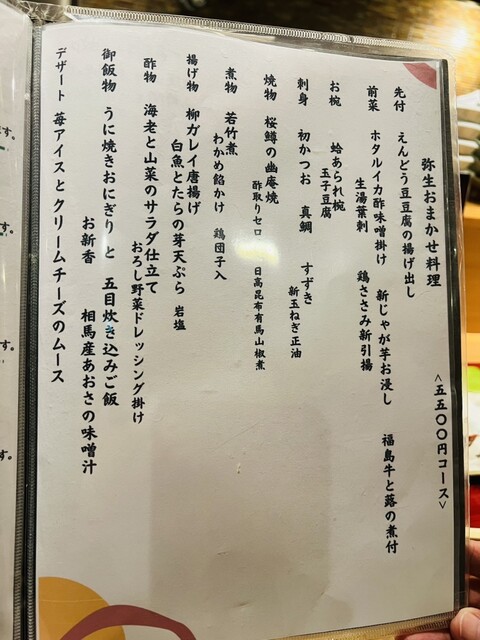 弥生おまかせ料理
<五五〇〇円コース>
先付 えんどう豆豆腐の揚げ出し
前菜 ホタルイカ酢味噌掛け 新じゃが芋お浸し 福島牛と蕗の煮付
生湯葉刺 鶏ささみ新引揚
お椀 蛤あられ椀
玉子豆腐
刺身 初かつお 真鯛 すずき
新玉ねぎ正油
焼物 桜鱒の幽庵焼
酢取りセロリ 日高昆布有馬山椒煮
煮物 若竹煮
わかめ餡かけ 鶏団子入
揚げ物 柳ガレイ唐揚げ
白魚とたらの芽天ぷら 岩塩
酢物 海老と山菜のサラダ仕立て
おろし野菜ドレッシング掛け
御飯物 うに焼きおにぎり と 五目炊き込みご飯
お新香 相馬産あおさの味噌汁
デザート 苺アイスとクリームチーズのムース
す。
す。
す。
す。